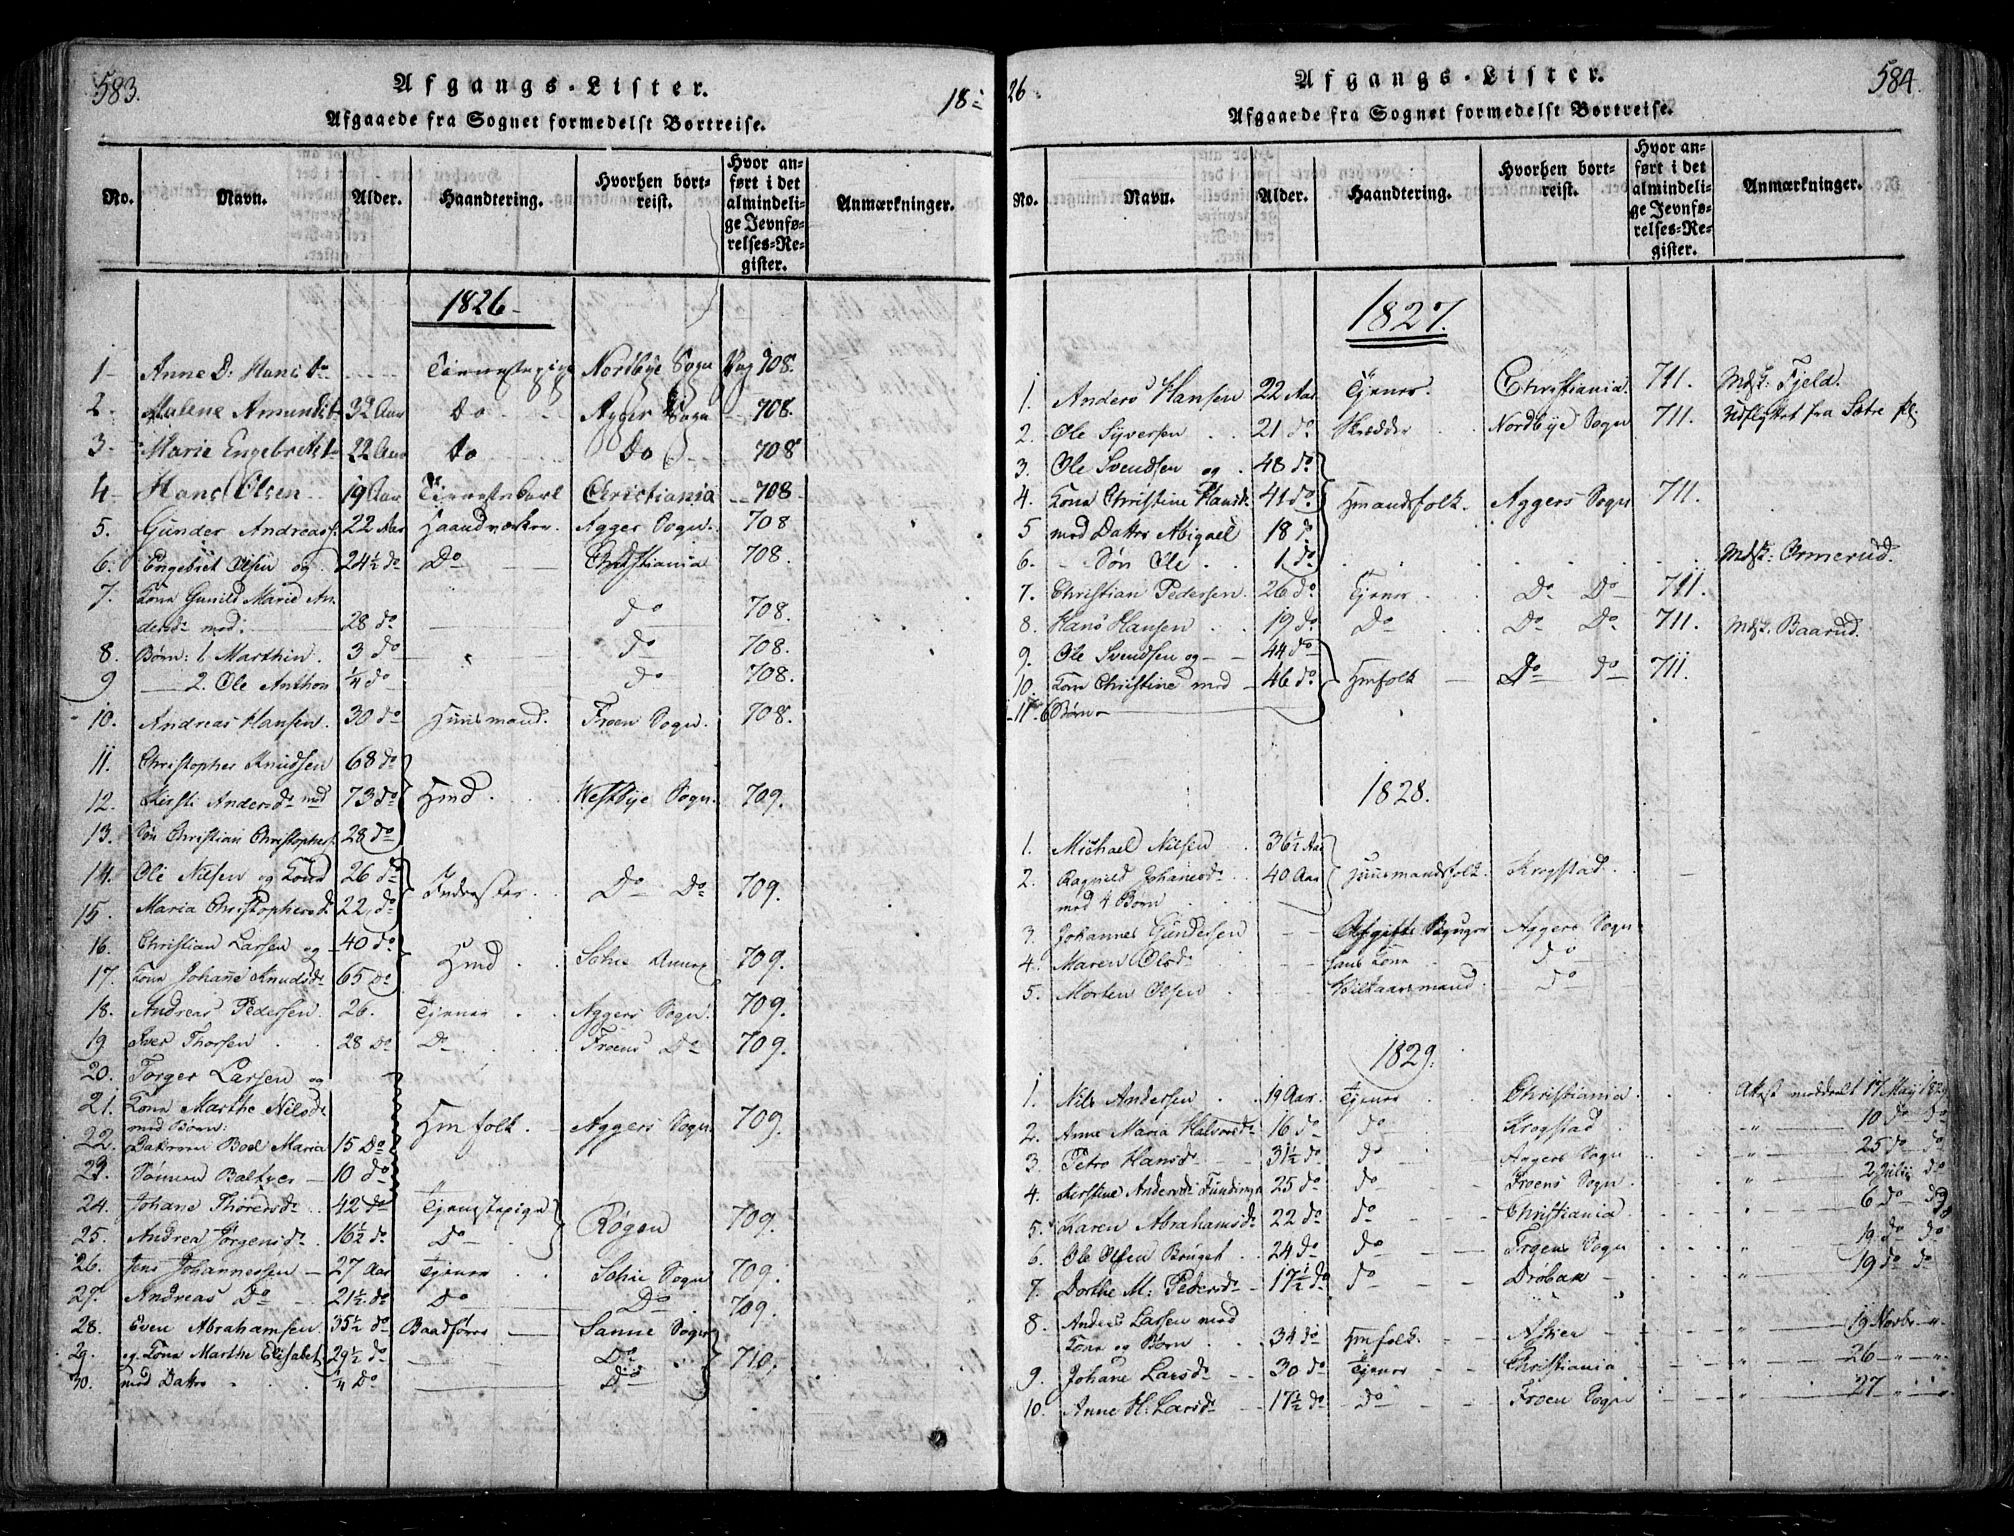 583.
Afgangs-Lister.
18-
Afgaaede fra Sognet formedelst Bortreise.
No. Navn. Alder. Haandtering. Hvorhen bortreist. Hvor anført i det almindelige Jevnførelses-Register. Anmærkninger.
1826
1 Anne D: Hans do Tienestepige Nordbye Sogn Pag 708.
2. Malene Amundsd 32 Aar Do Agger Sogn 708.
3. Marie Engebretsd 22 Aar do Do 708
4 Hans Olsen 19 Aar Tienestekarl Christiania 708
5. Gunder Andreass. 22 Aar Haandværker Agger Sogn. 708
6. Engebret Olsen og 24½ do Do Christiania 708.
7. Kone Gunild Marie An
dersd med: 28 do do 708.
8. Børn: 1. Marthin. 3 do do 708.
9 2. Ole Anthon ¼ do do 708.
10. Andreas Hansen. 30 do Huusmand. Froen Sogn. 708.
11. Christopher Knudsen 68 do
12. Kirsti Andersd med 73 do Hmd Westbye Sogn. 709.
13. Søn Christian Christophers. 28 do
14. Ole Nilsen og Kone 26 do
15. Maria Christophersd. 22 do Inderster Do Do 709.
16. Christian Larsen og 40 do
17. Kone Johane Knudsd 65 Do Hmd Sohie 709.
18. Andreas Pedersen 26. Tjener Aggers Sogn. 709.
19 Iver Thorsen 28 Do Do Froens Do 709.
20. Torger Larsen og
21. Kone Marthe Nilsd
med Børn:
Hmfolk Aggers Sogn. 709.
22. Datteren Boel Maria 15 Do
23. Sønnen Baltzer 10 do
24. Johane Thoresd. 42 do Tjenestepige Røgen 709.
25. Andrea Jørgensd. 16½ do Do
26. Jens Johannessen 27 Aar Tjener Sohie Sogn 709.
27. Andreas Do 21½ do Do Do 709.
28. Even Abrahamsen 35½ do Baadfører Sanne Sogn
29. og Kone Marthe Elisabet 29½ do Do 710.
30. med Datter ¼ Do Do
26.
Afgangs-Lister.
584.
Afgaaede fra Sognet formedelst Bortreise.
No. Navn. Alder. Haandtering. Hvorhen bortreist. Hvor anført i det almindelige Jevnførelses-Register. Anmærkninger.
1827.
1. Anders Hansen 22 Aar Tjener. Christiania. 711. Fjeld.
2. Ole Syversen 21 do Skrædder Nordbye Sogn 711. Udflyttet fra Sætre pl.
3. Ole Svendsen og 48 do
4. Kone Christine Hansd. 41 do Hmandsfolk. Aggers Sogn 711.
5 med Datter Abigael 18 d.
6. Søn Ole 1 do Ormerud.
7. Christian Pedersen 26 do Tjener Do Do 711.
8. Hans Hansen 19 do Do Do Do 711. Baarud.
9. Ole Svendsen og 44 do
10. Kone Christine med 46 do Hmfolk Do do 711.
11. 6 Børn
1828.
1. Michael Nilsen 36½ Aar
2. Ragnild Johanesd. 40 Aar Huusmandsfolk. Krogstad.
med 4 Børn
3. Johannes Gundersen Afgifts Bruger Aggers Sogn
4. Maren Olsd. hans Kone do
5. Morten Olsen Vilkaarsmand do
1829.
1. Nils Andersen 19 Aar. Tjener Christiania Attest meddelt 17 May 1829
2. Anne Maria Halvorsd. 16 do do Krogstad 10 do do
3. Petro Hansd. 31½ do. do Aggers Sogn 25 do do
4. Kirstine Andersd. 25 do do Froens Sogn 2 Julii do
5. Karen Abrahamsd. 22 do do Christiania 6 do do
6. Ole Olsen 24 do do Froens Sogn 19 do do
7. Dorthe M: Pedersd. 17½ do do Drøbak 19 do do
8. Anders Larsen med
Kone og Børn 34 do Hmfolk. Asker 19 Novbr
9. Johane Larsd. 30 do Tjener Christiania 26
10. Anne H: Larsd. 17½ do do Froen Sogn 27